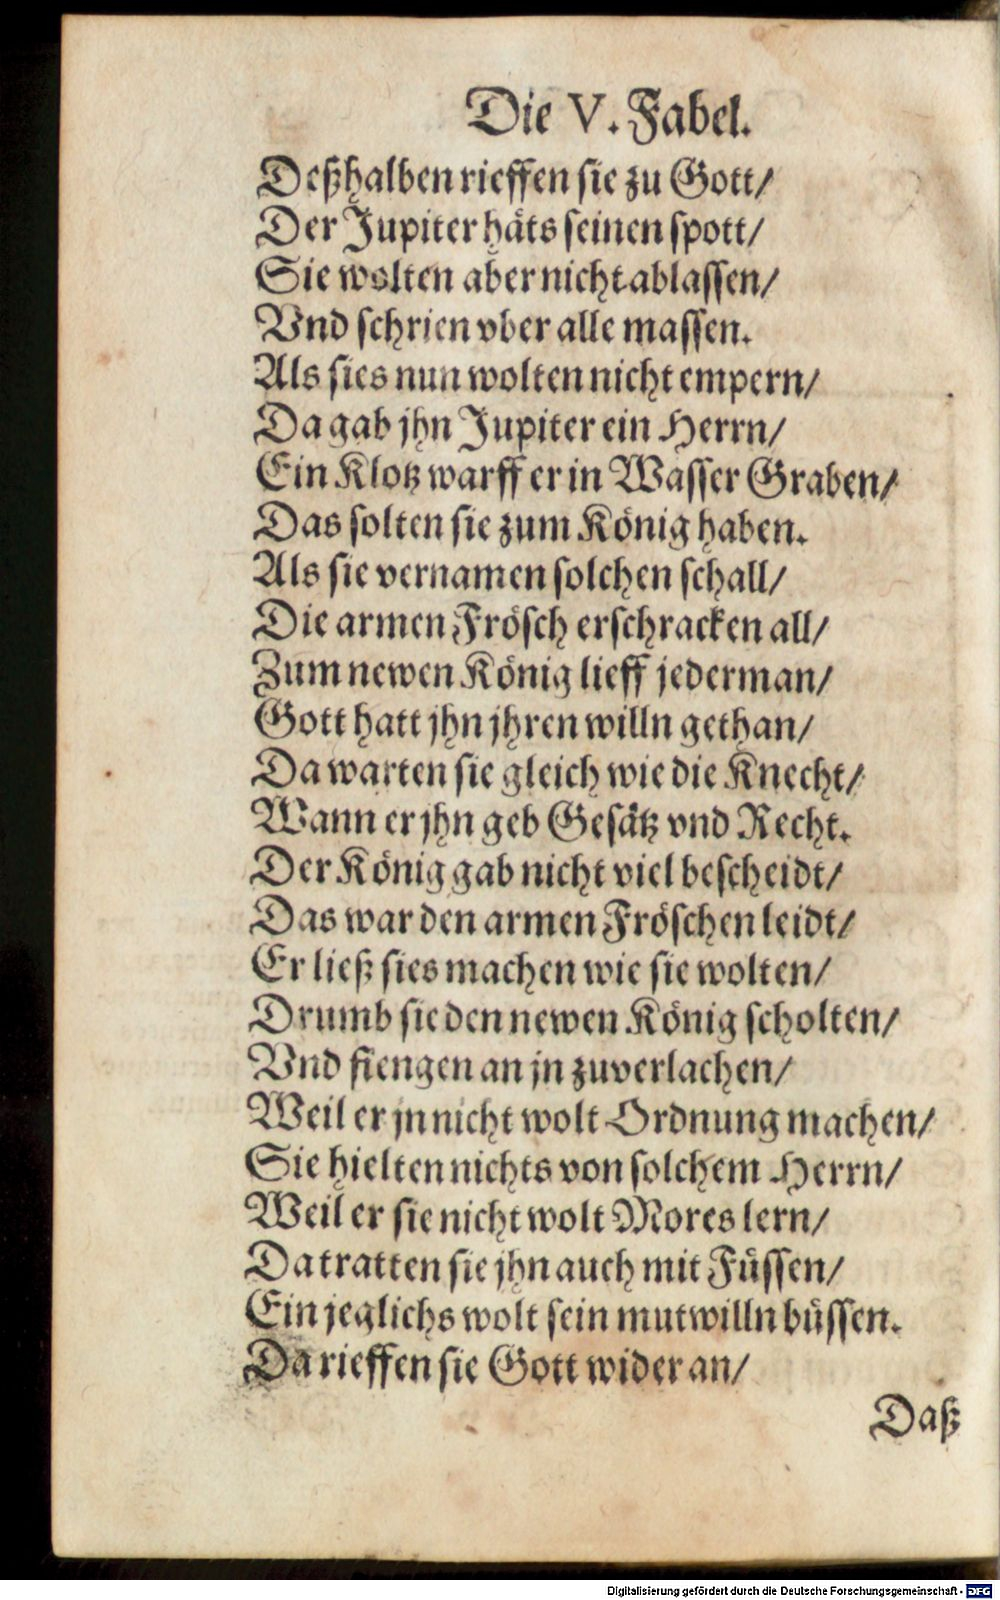 Die V. Fabel.
Deßhalben rieffen sie zu Gott/
Der Jupiter häts seinen spott/
Sie wolten aber nicht ablassen/
Vnd schrien vber alle massen.
Als sies nun wolten nicht empern/
Da gab jhn Jupiter ein Herrn/
Ein Klotz warff er in Wasser Graben/
Das solten sie zum König haben.
Als sie vernamen solchen schall/
Die armen Frösch erschracken all/
Zum newen König lieff jederman/
Gott hatt jhn jhren willn gethan/
Da warten sie gleich wie die Knecht/
Wann er jhn geb Gesätz vnd Recht.
Der König gab nicht viel bescheidt/
Das war den armen Fröschen leidt/
Er ließ sies machen wie sie wolten/
Drumb sie den newen König scholten/
Vnd fiengen an jn zuverlachen/
Weil er jn nicht wolt Ordnung machen/
Sie hielten nichts von solchem Herrn/
Weil er sie nicht wolt Mores lern/
Da tratten sie jhn auch mit Füssen/
Ein jeglichs wolt sein mutwilln büssen.
Da rieffen sie Gott wider an/
Daß
Digitalisierung gefördert durch die Deutsche Forschungsgemeinschaft - DFG